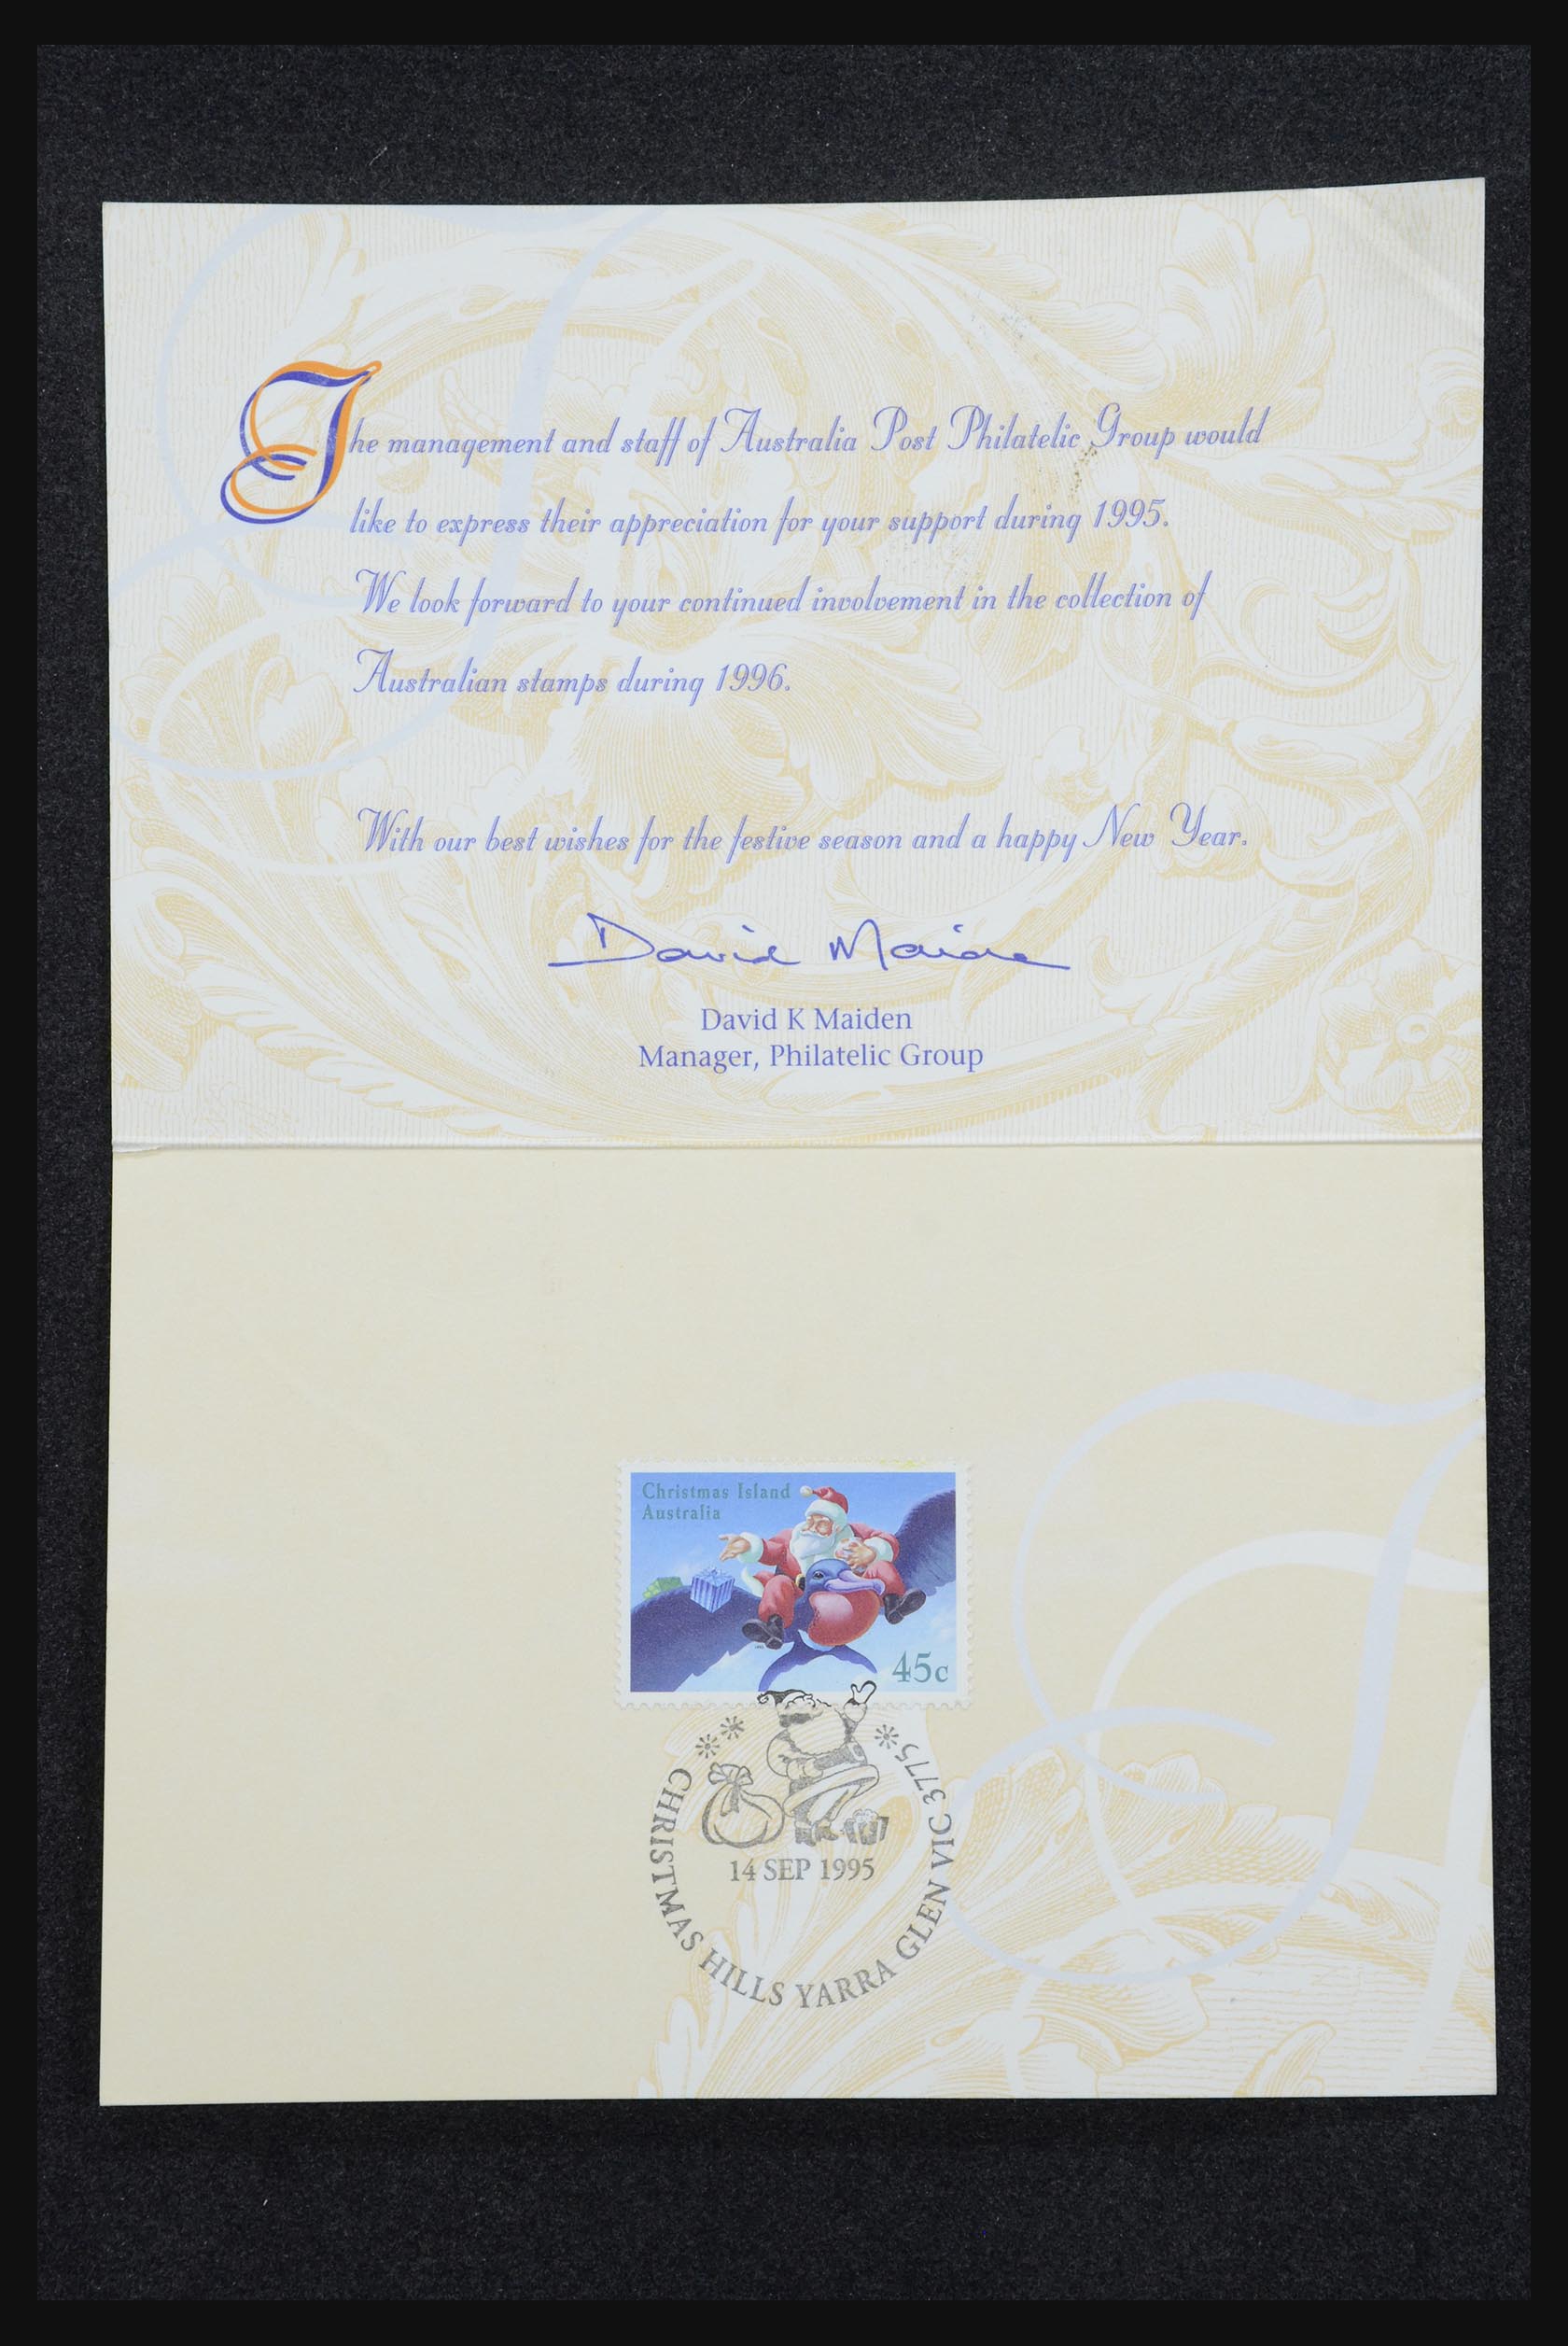 The management and staff of Australia Post Philatelic Group would
like to express their appreciation for your support during 1995.
We look forward to your continued involvement in the collection of
Australian stamps during 1996.
With our best wishes for the festive season and a happy New Year.
David Maiden
David K Maiden
Manager, Philatelic Group
Christmas Island
Australia
45c
14 SEP 1995
CHRISTMAS HILLS YARRA GLEN VIC 3775